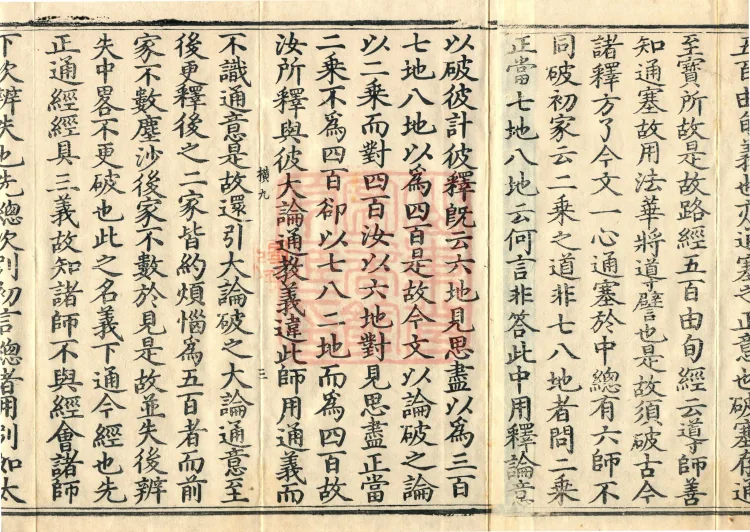 五百由旬義也亦通塞之正意也破塞存通
至寶所故是故路經五百由旬經云導師善
知通塞故用法華將導譬也是故須破古今
諸釋方了今文一心通塞於中總有六師不
同破初家云二乘之道非七八地者問二乘
正當七地八地云何言非答此中用釋論意
以破彼計彼釋旣云六地見思盡以爲三百
七地八地以爲四百是故今文以論破之論
以二乘而對四百汝以六地對見思盡正當
二乘不爲四百卻以七八二地而爲四百故
汝所釋與彼大論通教義違此師用通義而
橫九 三
不識通意是故還引大論破之大論通意至
後更釋後之二家皆約煩惱爲五百者而前
家不數塵沙後家不數於見是故並失後辨
失中畧不更破也此之名義下通今經也先
正通經經具三義故知諸師不與經會諸師
下次辨失也先總次別初言總者用別如太